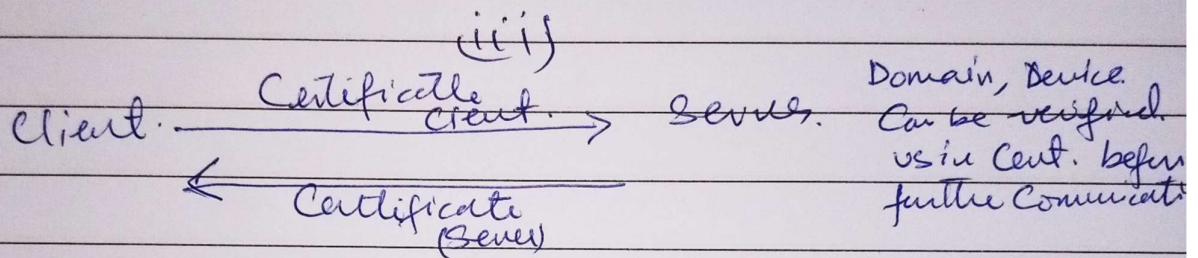 (iii)
Client. Certificatle Client. Server.
Certificate (Server)
Domain, Device.
Can be verified
usin Cert. befor
furthe Comunicati